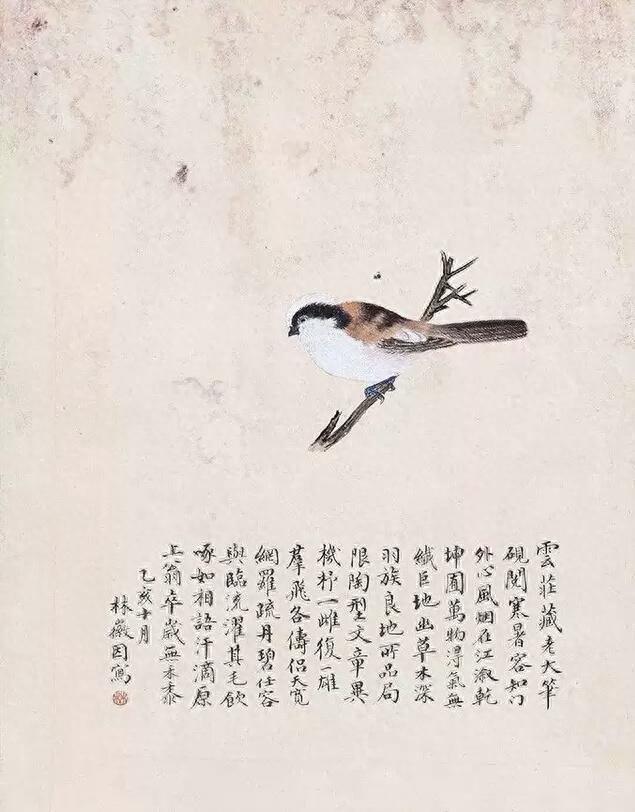 雲莊藏老大筆
硯閱寒暑容知门
外心風烟在江溆乾
坤囿萬物淂氣無
纖巨地幽草木深
羽族良地所品局
限陶型文章異
機杼一雌復一雄
羣飛各儔侣天寬
網羅疏丹碧任容
與臨流濯其毛飲
啄如相語汗滴原
上翁卒歲無禾黍
乙亥十月
林徽因寫